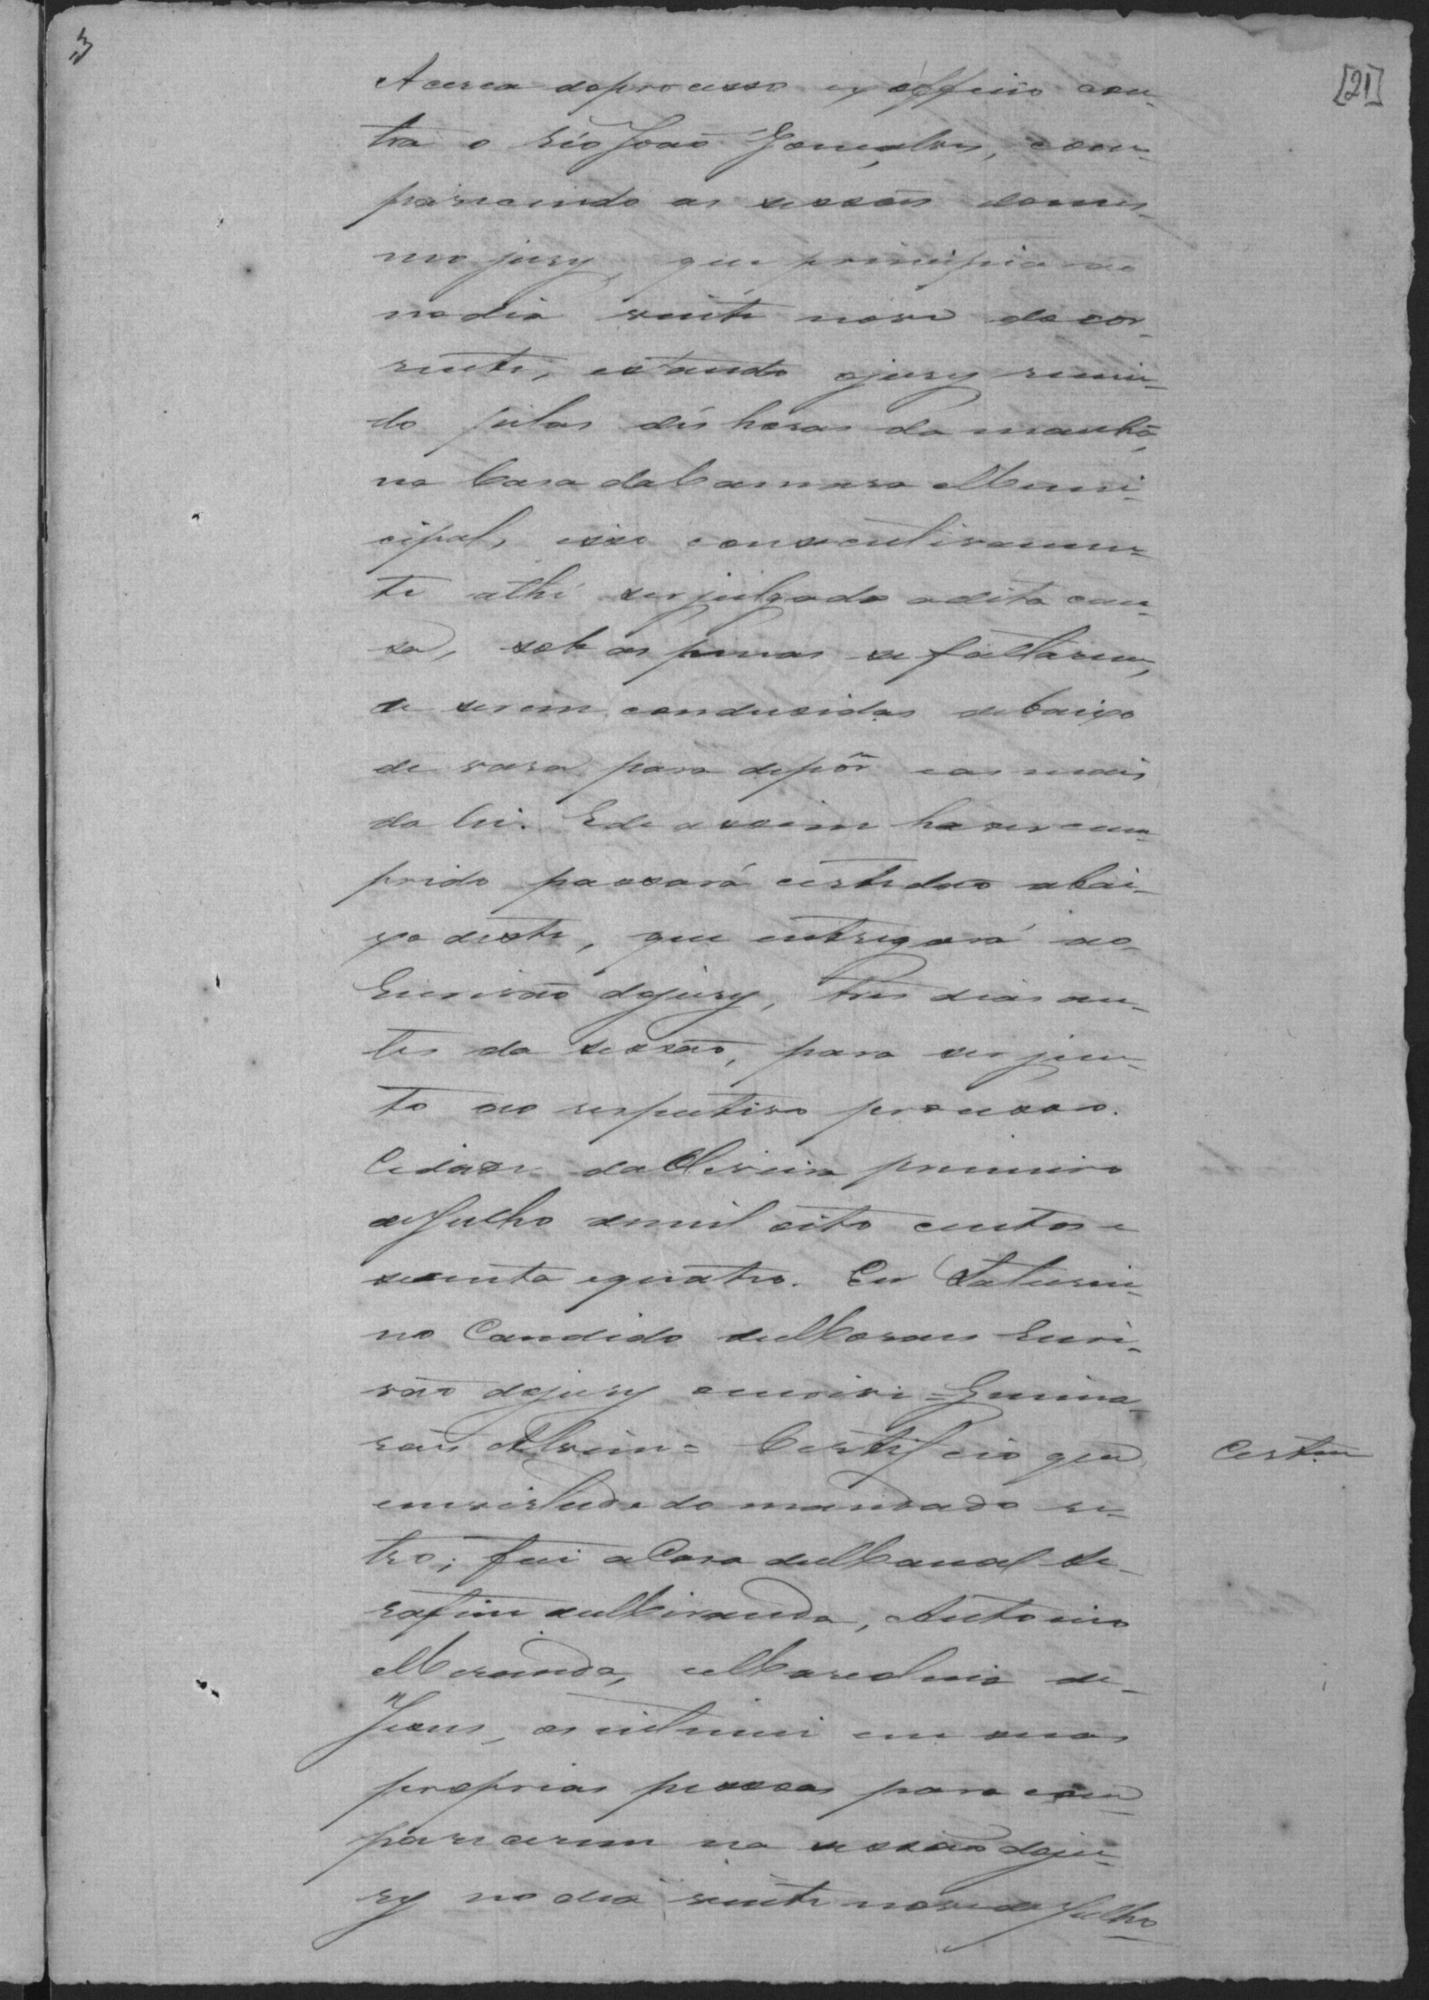 [21]
Acerca do processo ex officio con-
tra o réo João Gonçalves, com-
parecendo as sessoẽs do mes-
mo jury, que principia
no dia vinte nove do cor-
rente, estando o jury reuni-
do pelas dés horas da manhã,
na Casa da Camara Muni-
cipal, isso consecutivamen-
te athé ser julgada a dita cau-
sa, sob as penas se faltarem,
de serem conduzidas debaixo
de vara para depôr e as mais
da lei. E de assim haver cum-
prido passará certidaõ abai-
xo deste, que entregará ao
Escrivaõ do jury, tres dias an-
tes da sessaõ, para ser jun-
to ao respectivo processo.
Cidade da Oliveira primeiro
de Julho de mil oito centos e
secenta e quatro. Eu Saturni-
no Candido de Moraes Escri-
vaõ do jury escrivi = Guima-
raẽs Alvim = Certifico que
em virtude do mandado re-
tro; fui a Casa de Manoel Se-
rafim de Miranda, Antonio
Miranda, e Marcolino de
Jesus, os intimei em suas
proprias pessoas para com-
parecerem na sessaõ do ju-
ry no dia vinte nove de Julho
Certam